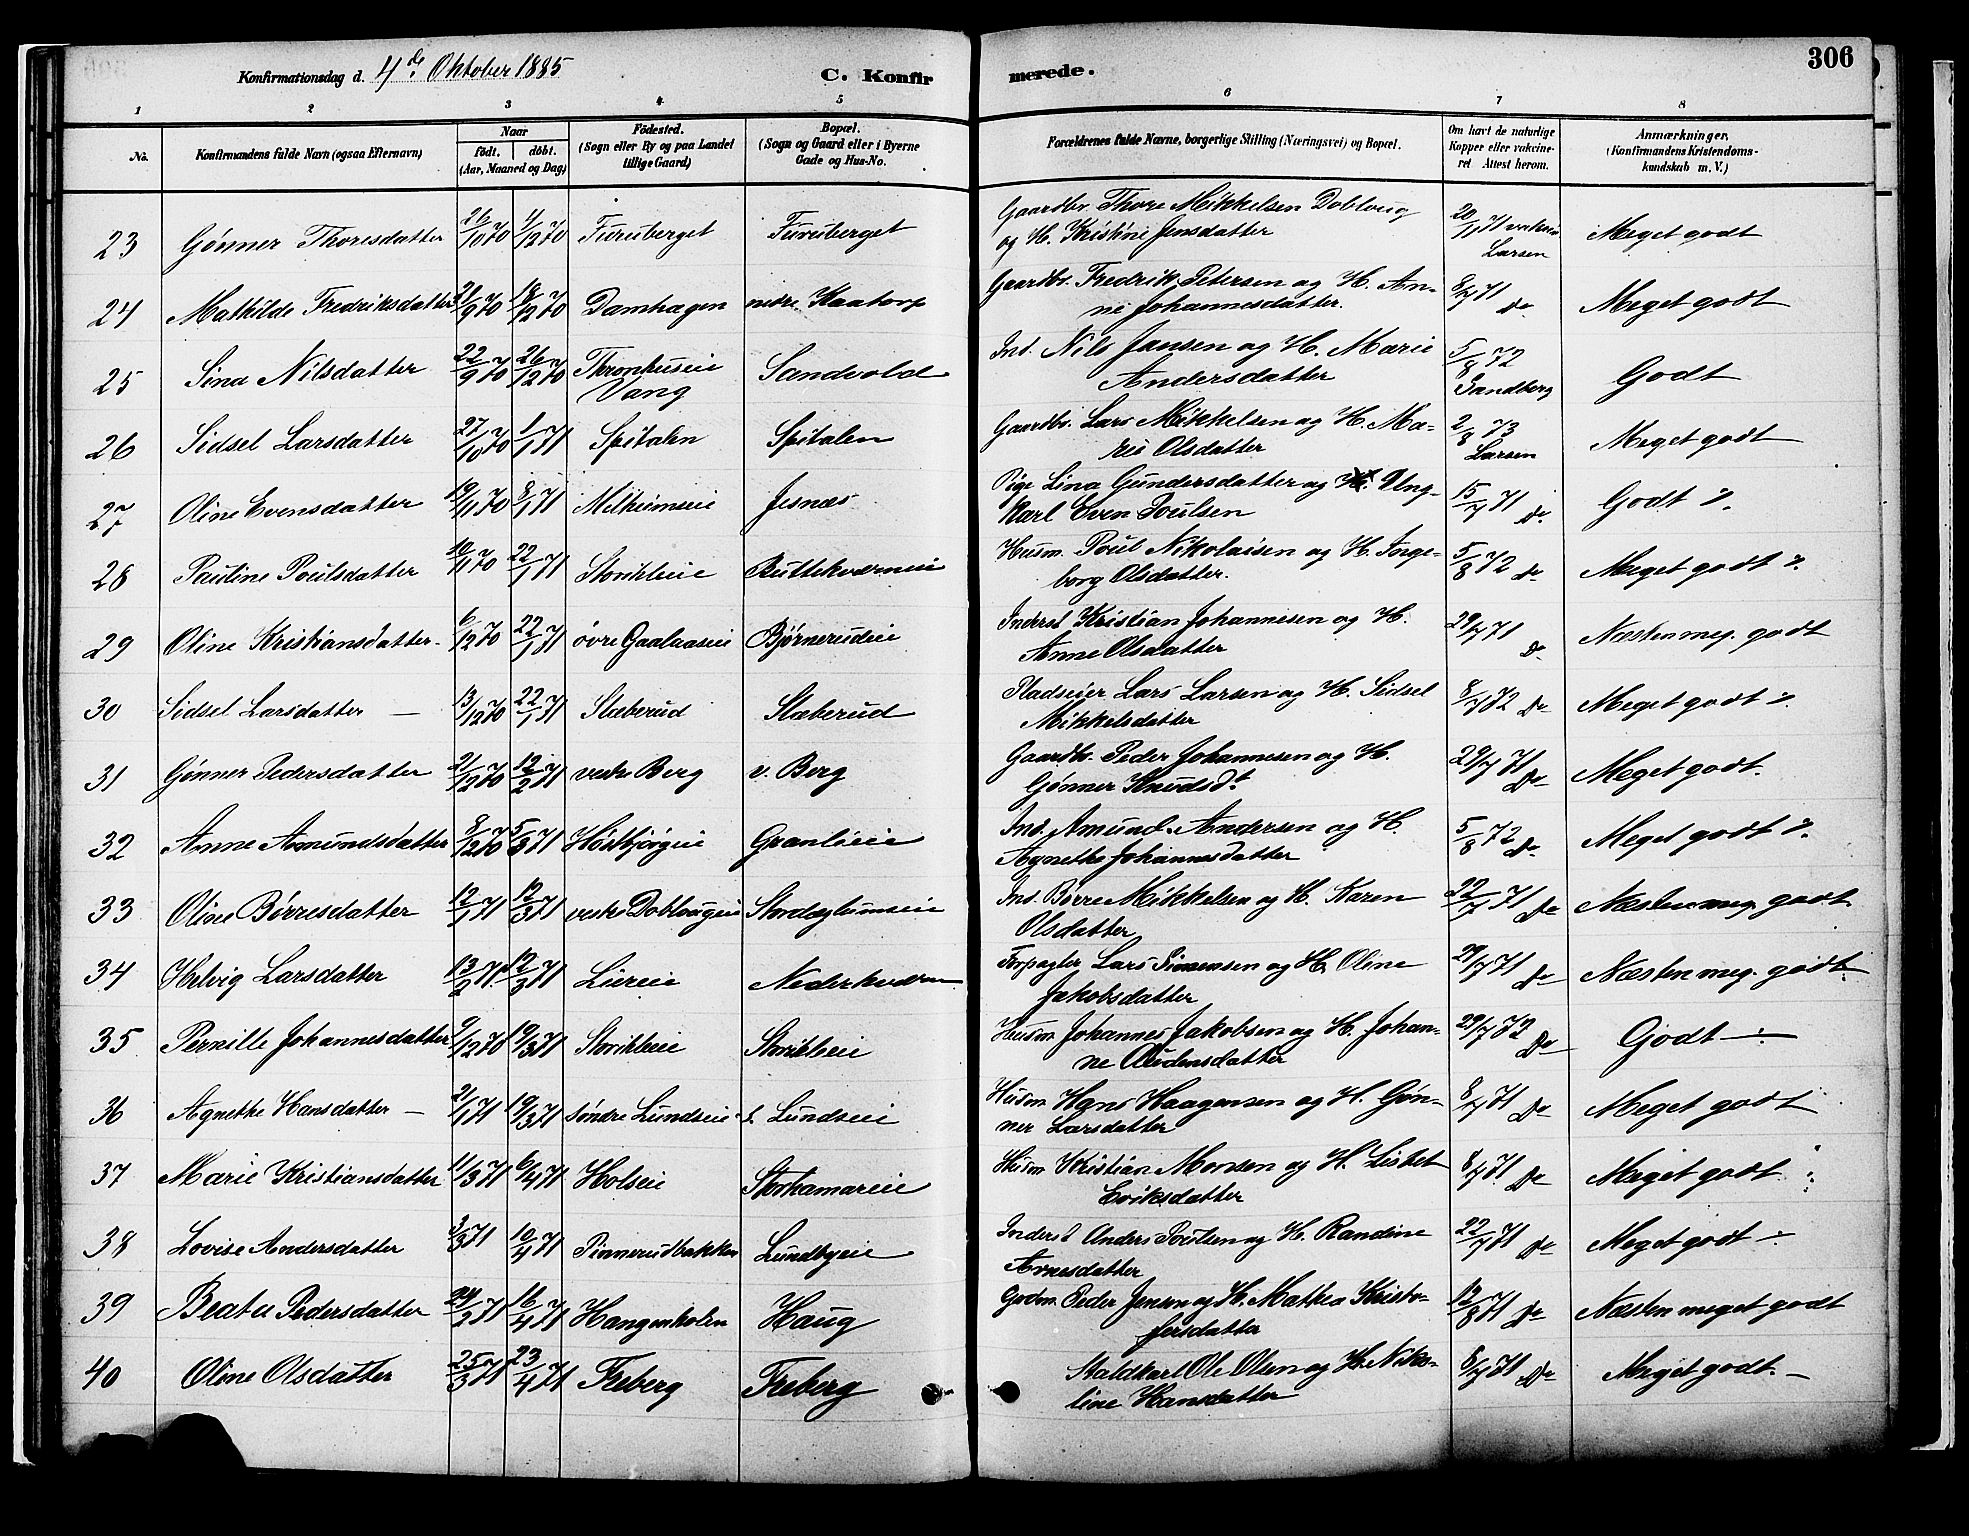 306
Konfirmationsdag d. 4de Oktober 1885 C. Konfir merede.
1 2 3 4 5 6 7 8
No. Konfirmandens fulde Navn (ogsaa Efternavn) Naar födt. döbt. (Aar, Maaned og Dag) Födested. (Sogn eller By og paa Landet tillige Gaard) Bopæl. (Sogn og Gaard eller i Byerne Gade og Hus-No.) Forældrenes fulde Navne, borgerlige Stilling (Næringsvei) og Bopæl. Om havt de naturlige Kopper eller vakcineret Attest herom. Anmærkninger. (Konfirmandens Kristendomskundskab m. V.)
23 Gønner Thoresdatter 26/10 70 4/12 70 Furuberget Furuberget Gaardbr. Thore Mikkelsen Dobloug
og H. Kristine Jensdatter 20/11 71 Larsen Meget godt
24 Mathilde Fredriksdatter 21/9 70 18/12 70 Damhagen nedre Kaatorp Gaardbr. Fredrik Petersen og H. An-
ne Johannesdatter. 8/7 71 Do Meget godt
25 Sina Nilsdatter 22/9 70 26/12 70 Thronhuseie Vang Sandvold Ind. Nils Jansen og H. Marie
Andersdatter 5/8 72 Sandberg Godt
26 Sidsel Larsdatter 27/10 70 1/1 71 Spitalen Spitalen Gaardbr. Lars Mikkelsen og H. Ma-
rie Olsdatter 2/8 73 Larsen Meget godt
27 Oline Evensdatter 19/11 70 8/1 71 Milheimseie Jesnæs Pige Lina Gundersdatter og Ung-
karl Even Poulsen 15/7 71 Do Godt
28 Pauline Poulsdatter 10/11 70 22/1 71 Storihleie Buttekværneie Husm. Poul Nikolaisen og H. Inge-
borg Olsdatter. 5/8 72 Do Meget godt
29 Oline Kristiansdatter 6/12 70 22/1 71 øvre Gaalaaseie Bjørnerudeie Inderst Kristian Johannesen og H.
Anne Olsdatter 29/7 71 Do Næsten meg. godt
30 Sidsel Larsdatter 13/12 70 22/1 71 Slæberud Slæberud Pladseier Lars Larsen og H. Sidsel
Mikkelsdatter 8/7 72 Do Meget godt
31 Gønner Pedersdatter 21/12 70 12/2 71 vestre Berg v. Berg Gaardbr. Peder Johannesen og H.
Gønner Knudsdt 29/7 71 Do Meget godt.
32 Anne Amundsdatter 8/12 70 5/3 71 Høsbjørgeie Granlieie Ind. Amund Andersen og H.
Agnethe Johannesdatter 5/8 72 Do Meget godt
33 Oline Børresdatter 12/1 71 12/3 71 vestre Doblougeie Stordøglumseie Ind. Børre Mikkelsen og H. Karen
Olsdatter 22/7 71 Do Næsten meg. godt
34 Helvig Larsdatter 13/2 71 12/3 71 Liereie Nederkværn Forpagter Lars Simensen og H. Oline
Jakobsdatter 29/7 71 Do Næsten meg. godt
35 Pernille Johannesdatter 9/12 70 19/3 71 Storihleie Storihleie Husm. Johannes Jakobsen og H. Johan-
ne Audensdatter 29/7 72 Do Godt
36 Agnethe Hansdatter 2/1 71 19/3 71 søndre Lundseie s. Lundseie Husm. Hans Haagensen og H. Gøn-
ner Larsdatter 8/7 71 Do Meget godt
37 Marie Kristiansdatter 11/3 71 6/4 71 Holseie Storhamareie Husm. Kristian Monsen og H. Lisbet
Eriksdatter 8/7 71 Do Meget godt
38 Lovise Andersdatter 3/3 71 10/4 71 Pinnerudbakken Lundbyeie Inderst Anders Poulsen og H. Randine
Arnesdatter 22/7 71 Do Meget godt
39 Beate Pedersdatter 24/2 71 16/4 71 Haugenholen Haug Godm. Peder Jensen og H. Mathea Kristo-
fersdatter 12/8 71 Do Næsten meget godt
40 Oline Olsdatter 25/3 71 23/4 71 Freberg Freberg Staldkarl Ole Olsen og H. Niko-
line Hansdatter 8/7 71 Do Meget godt.